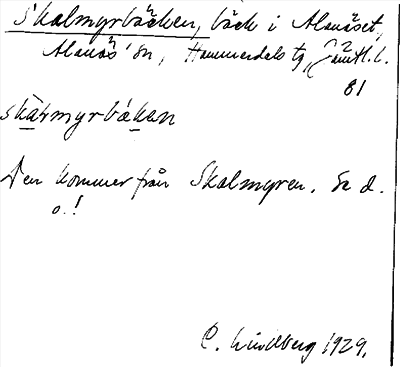 Skalmyrbäcken, bäck i Alanäset,
Alanäs' sn, Hammerdals tg, Jämtl. l.
81
skàrmyrbákan
Den kommer från Skalmyren. Se d.
o.!
C. Lindberg 1929.